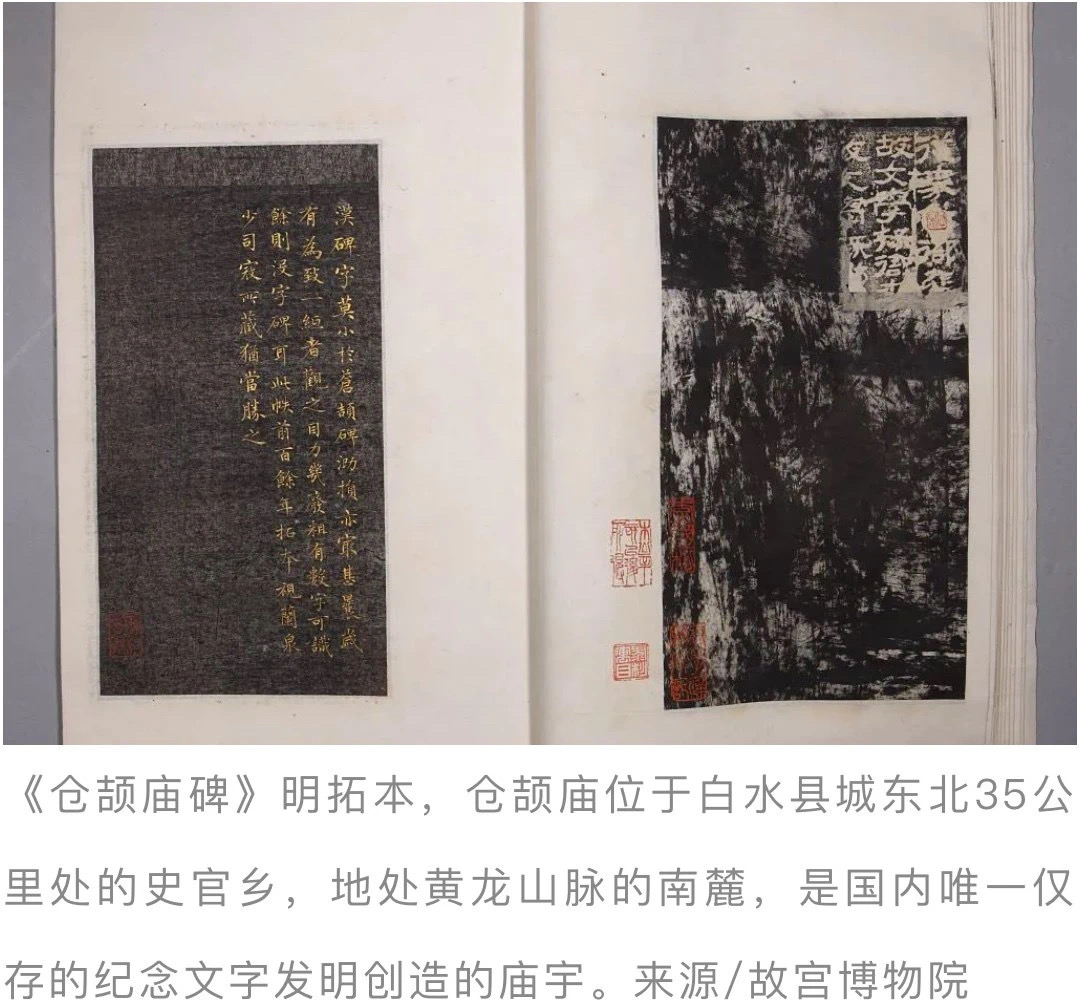 故文學掾
漢碑字莫小於蒼頡碑泐損亦冣甚曩歲
有為致一紙者觀之目力幾廢粗有數字可識
餘則没字碑耳此帙前百餘年拓本視蘭泉
少司寇所藏猶當勝之
《仓颉庙碑》明拓本，仓颉庙位于白水县城东北35公
里处的史官乡，地处黄龙山脉的南麓，是国内唯一仅
存的纪念文字发明创造的庙宇。来源/故宫博物院